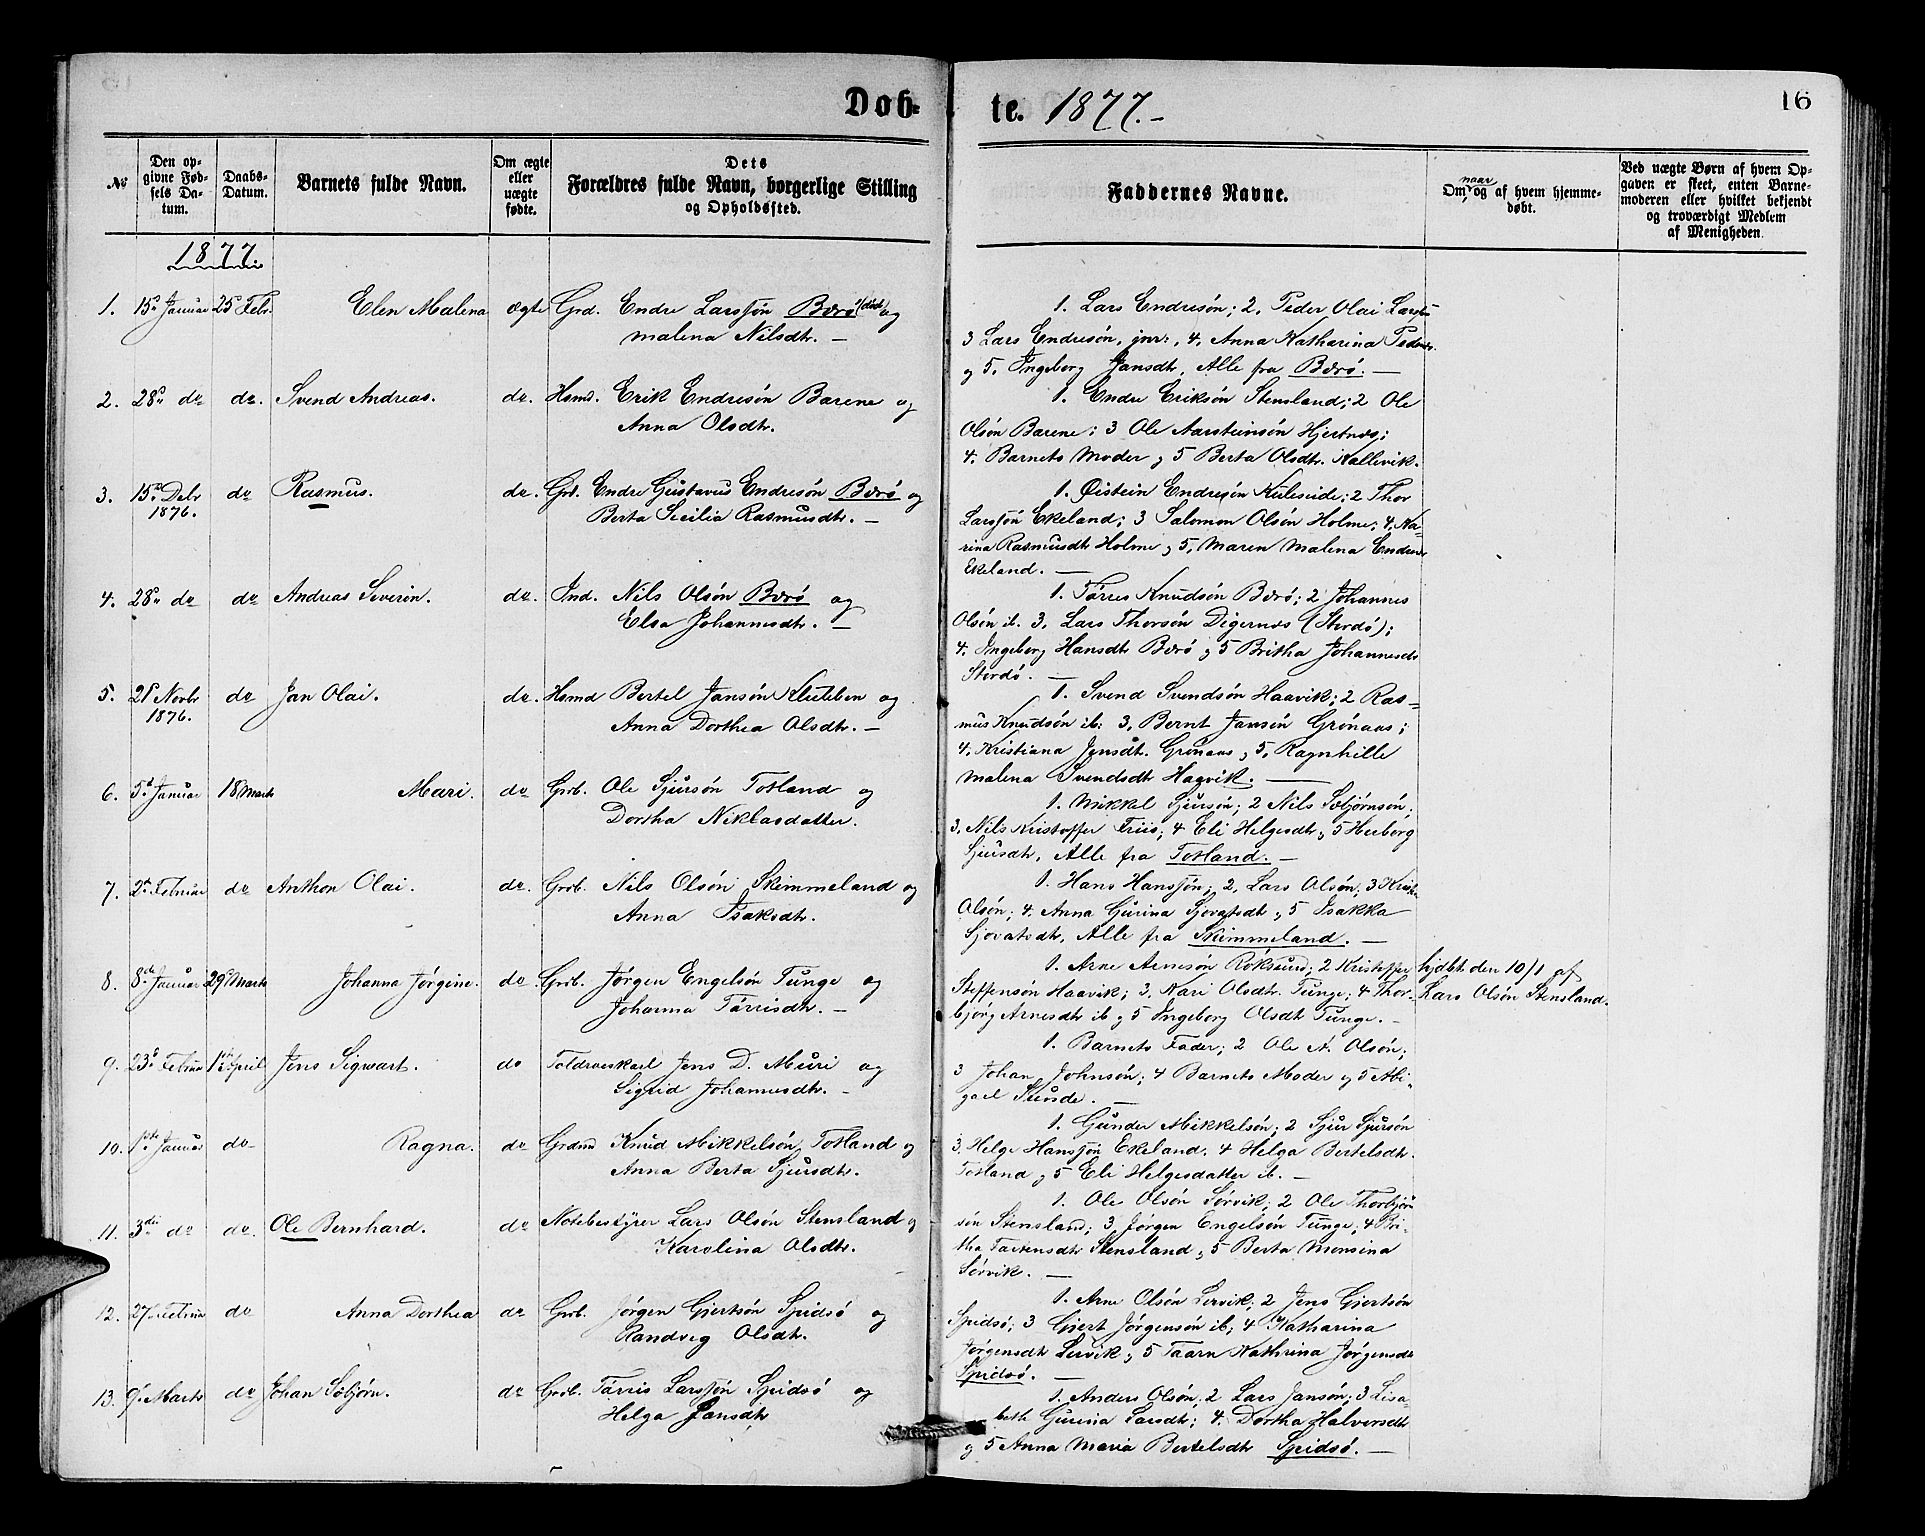 Døb-
te. 1877.-
16
No
Den op-
givne Fød-
sels Da-
tum.
Daabs-
Datum.
Barnets fulde Navn.
Om ægte
eller
uægte
fødte.
Dets
Forældres fulde Navn, borgerlige Stilling
og Opholdssted.
Faddernes Navne.
Om, naar og af hvem hjemme-
døbt.
Ved uægte Børn af hvem Op-
gaven er skeet, enten Barne-
moderen eller hvilket bekjendt
og troværdigt Medlem
af Menigheden.
1877.
1. 15de Januar 25de Febr. Elen Malena ægte Grd. Endre Larssøn Børø og
Malena Nilsdtr. –
1. Lars Endresøn; 2. Peder Olai
3 Lars Endresøn, jnr., 4. Anna Katharina
og 5. Ingeborg Jansdt. Alle fra Børø. –
2. 28de do do. Svend Andreas. do. Hsmd. Erik Endresøn Barene og
Anna Olsdtr.
1. Endre Eriksøn Stensland; 2 Ole
Olsøn Barene; 3 Ole Aarsteinsøn Hjertnes;
4. Barnets Moder og 5 Berta Olsdtr. Kallevik.
3. 15de Debr do Rasmus. do. Grd. Endre Gustavus Endresøn Børø og
1876. Berta Sicilia Rasmusdtr. –
1. Øistein Endresøn Kuleseide; 2 Thor
Larssøn Ekeland; 3 Salomon Olsøn Holme; 4. Ka-
rina Rasmusdt Holme og 5. Maren Malena
Ekeland. –
4. 28de do do Andreas Severin. do. Ind. Nils Olsøn Børø og
Elsa Johannesdtr. –
1. Tørres Knudsøn Børø; 2 Johannes
Olsøn ib. 3. Lars Thorsøn Digernes (Stordø);
4. Ingeborg Hansdt Børø og 5 Britha Johannesdt
Stordø. –
5. 21de Novbr do Jan Olai. do. Hsmd Bertel Jansøn Klubben og
1876. Anna Dorthea Olsdtr. –
1. Svend Svendsøn Haavik; 2 Ras-
mus Knudsøn ib; 3. Bernt Jansøn Grønaas;
4. Kristiana Jansdt. Grønaas og 5. Ragnhille
Malena Svendsdt Haavik. –
6. 5te Januar 18 Marts Mari. do Grb. Ole Sjursøn Totland og
Dortha Niklasdatter.
1. Mikkel Sjursøn; 2 Nils Sæbjørnsøn;
3. Nils Kristoffer Friis; 4 Eli Helgesdt og 5 Herborg
Sjursdt. Alle fra Totland. –
7. 2den Februar do Anthon Olai. do. Grb. Nils Olsøn Skimmeland og
Anna Isaksdtr.
1. Hans Hanssøn; 2. Lars Olsøn; 3
Olsøn; 4. Anna Gurina Sjovatsdt og 5 Isakka
Sjovatsdt. Alle fra Skimmeland. –
8. 8de Januar 29de Marts Johanna Jørgine. do Grb. Jørgen Engelsøn Tunge og
Johanna Tørrisdtr. –
1. Arne Arnesøn Røksund; 2 Kristoffer
Steffensøn Haavik; 3. Kari Olsdtr. Tunge; 4 Thor-
bjørg Arnesdtr ib og 5 Ingeborg Olsdt Tunge. –
hjdbt. den 10/1 af
Lars Olsøn Stensland.
9. 23de Februar 1ste April Jens Sigwart. do Toldroeskarl Jens D. Muri og
Sigrid Johannesdtr. –
1. Barnets Fader; 2 Ole N. Olsøn;
3 Johan Johnsøn; 4 Barnets Moder og 5 Abi-
gael Sunde. –
10. 1ste Januar do Ragna. do Grdmd Knud Mikkelsøn Totland og
Anna Berta Sjursdtr.
1. Gunder Mikkelsøn; 2 Sjur Sjursøn
3. Helge Hanssøn Ekeland. 4 Helga Bertelsdtr.
Totland og 5 Eli Helgesdatter ib. –
11. 3die do do. Ole Bernhard. do Notebestyrer Lars Olsøn Stensland og
Karolina Olsdtr.
1. Ole Olsøn Sørvik; 2 Ole Thorbjørn
søn Stensland; 3 Jørgen Engelsøn Tunge; 4 Bri-
tha Stensland og 5 Berta Monsina
Sørvik. –
12. 27 Februar do Anna Dorthea do Grb. Jørgen Gjertsøn Spidsø og
Randveg Olsdtr.
1. Arne Olsøn Lervik; 2 Jens Gjertsøn
Spidsø; 3 Gjert Jørgensøn ib; 4 Katharina
Jørgensdtr Lervik og 5 Taarn Kathrina Jørgensdt
Spidsø. –
13. 9 Marts do Johan Sæbjørn. do Grb. Tørris Larssøn Spidsø og
Helga Jansdt
1. Anders Olsøn; 2 Lars Jansøn; 3 Lisa-
beth Gurina Larsdt; 4. Dortha Halversdt
og 5 Anna Maria Bertelsdt Spidsø. –